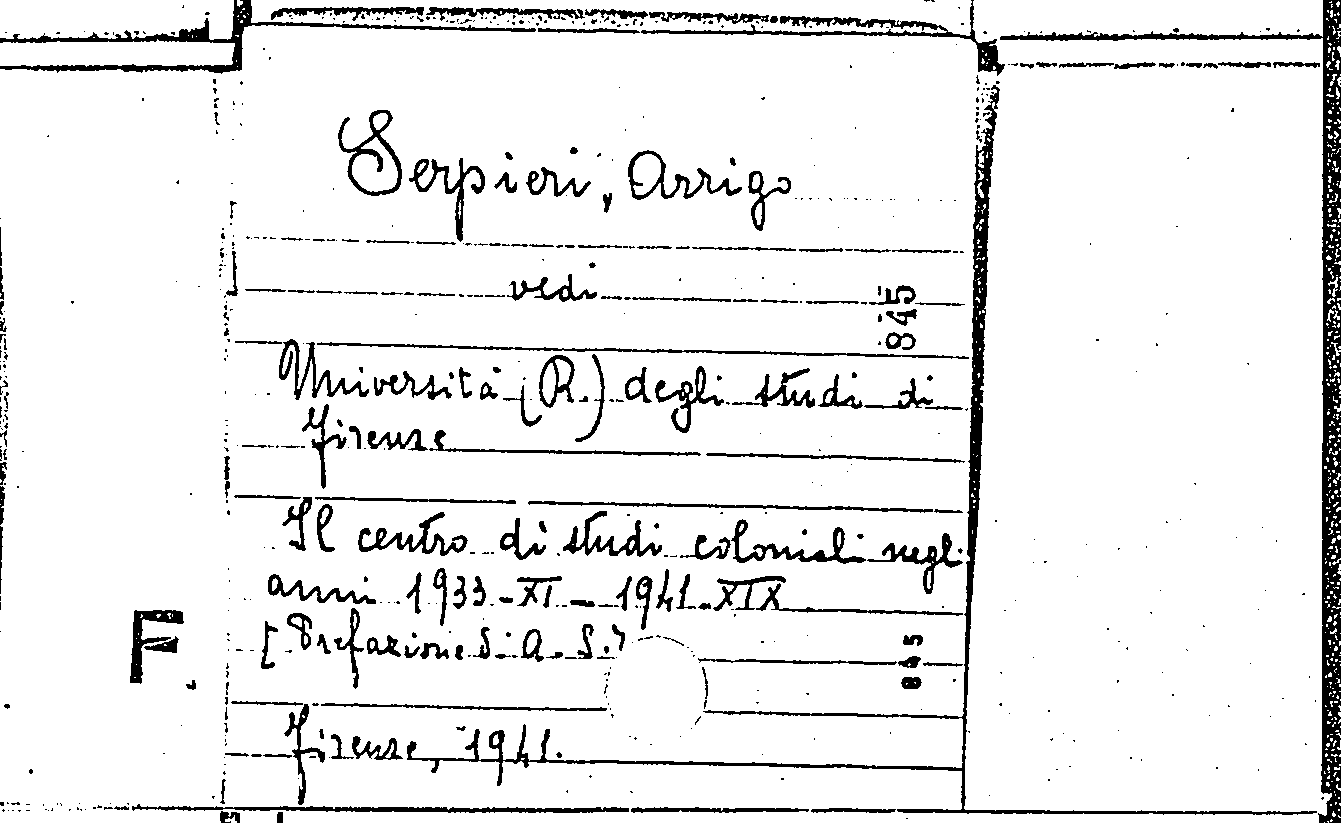 Serpieri, Arrigo
vedi
845
Università (R.) degli studi di
Firenze
Il centro di studi coloniali negli
anni 1933-XI - 1941-XIX
[Prefazione di A. S.]
845
F.
Firenze, 1941.